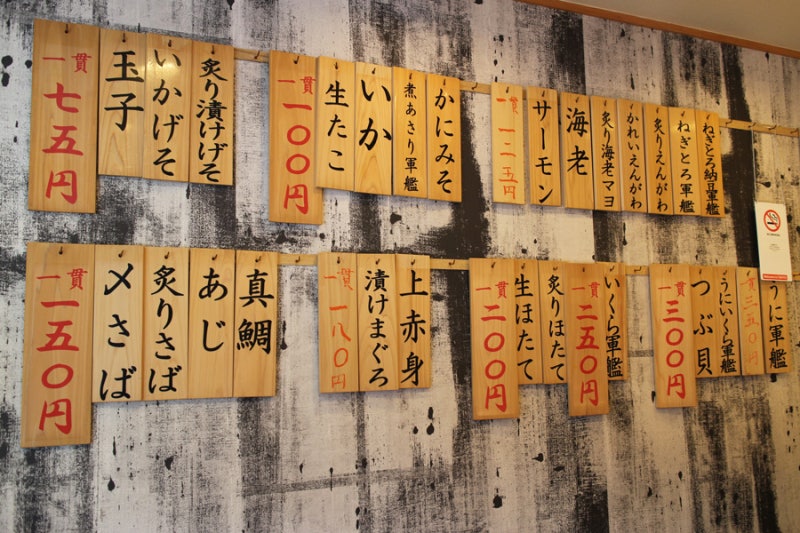 一貫 七五円
玉子
いかげそ
炙り漬けげそ
一貫 一〇〇円
生たこ
いか
煮あさり軍艦
かにみそ
一貫 一二五円
サーモン
海老
炙り海老マヨ
かれいえんがわ
炙りえんがわ
ねぎとろ軍艦
ねぎとろ納豆軍艦
一貫 一五〇円
〆さば
炙りさば
あじ
真鯛
一貫 一八〇円
漬けまぐろ
上赤身
一貫 二〇〇円
生ほたて
炙りほたて
一貫 二五〇円
いくら軍艦
一貫 三〇〇円
つぶ貝
うにいくら軍艦
一貫 三五〇円
うに軍艦